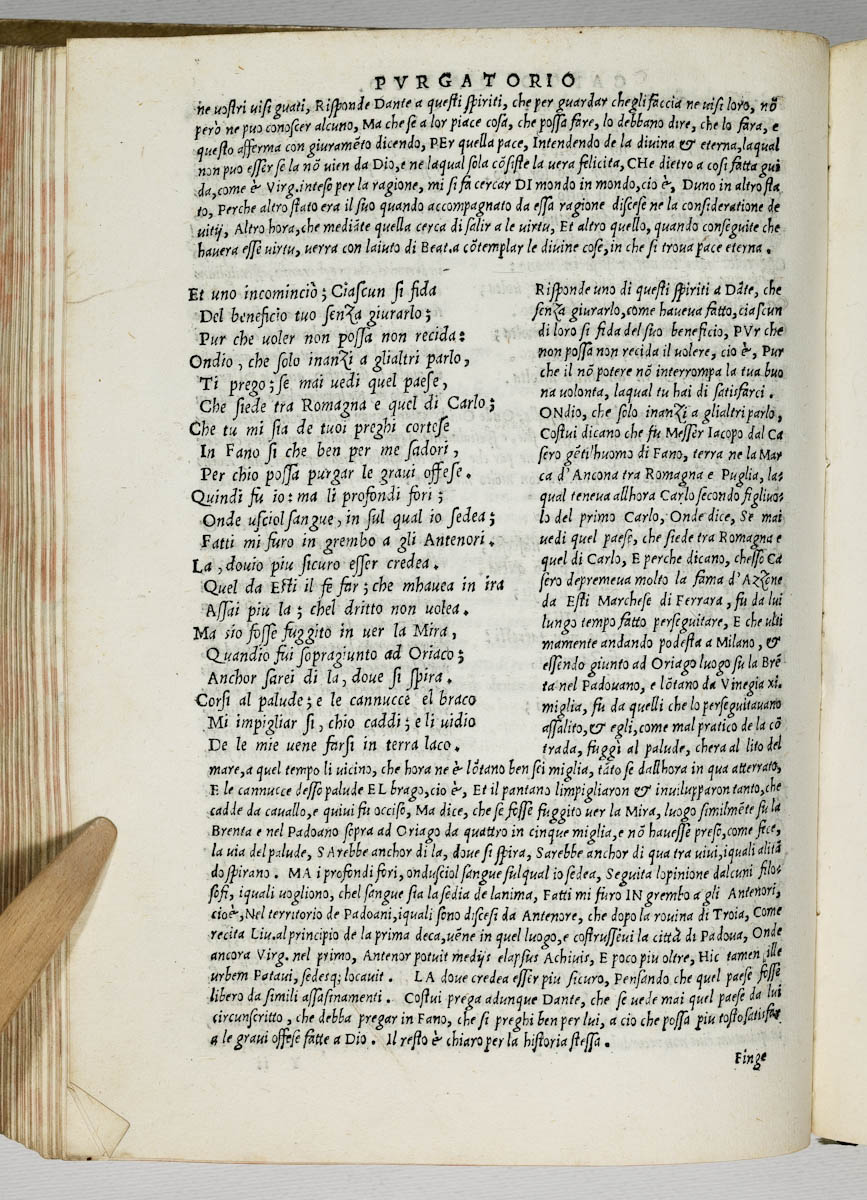 PVRGATORIO
ne uostri uisi guati, Risponde Dante a questi spiriti, che per guardar che gli faccia ne uisi loro, nõ
però ne puo conoscer alcuno, Ma che se a lor piace cosa, che possa fare, lo debbano dire, che lo fara, e
questo afferma con giuramẽto dicendo, PEr quella pace, Intendendo de la diuina & eterna, laqual
non puo esser se la nõ uien da Dio, e ne laqual sola cõsiste la uera felicita, CHe dietro a cosi fatta gui
da, come è Virg. inteso per la ragione, mi si fa cercar DI mondo in mondo, cio è, Duno in altro sta
to, Perche altro stato era il suo quando accompagnato da essa ragione discese ne la consideratione de
uitij, Altro hora, che mediãte quella cerca di salir a le uirtu, Et altro quello, quando conseguite che
hauera esse uirtu, uerra con laiuto di Beat. a cõtemplar le diuine cose, in che si troua pace eterna.
Et uno incominciò; Ciascun si fida
Del beneficio tuo senza giurarlo;
Pur che uoler non possa non recida:
Ondio, che solo inanzi a glialtri parlo,
Ti prego; se mai uedi quel paese,
Che siede tra Romagna e quel di Carlo;
Che tu mi sia de tuoi preghi cortese
In Fano si che ben per me sadori,
Per chio possa purgar le graui offese.
Quindi fu io: ma li profondi fori;
Onde uscio lsangue, in sul qual io sedea;
Fatti mi furo in grembo a gli Antenori.
La, douio piu sicuro esser credea.
Quel da Esti il fe far; che mhauea in ira
Assai piu la; chel dritto non uolea.
Ma sio fosse fuggito in uer la Mira,
Quandio fui sopragiunto ad Oriaco;
Anchor sarei di la, doue si spira.
Corsi al palude; e le cannucce el braco
Mi impigliar si, chio caddi; e li uidio
De le mie uene farsi in terra laco.
Risponde uno di questi spiriti a Dãte, che
senza giurarlo, come haueua fatto, ciascun
di loro si fida del suo beneficio, PVr che
non possa non recida il uolere, cio è, Pur
che il nõ potere nõ interrompa la tua buo
na uolonta, laqual tu hai di satisfarci.
ONdio, che solo inanzi a glialtri parlo,
Costui dicano che fu Messer Iacopo dal Ca
sero gẽtil'huomo di Fano, terra ne la Mar
ca d'Ancona tra Romagna e Puglia, la-
qual teneua allhora Carlo secondo figliuo-
lo del primo Carlo, Onde dice, Se mai
uedi quel paese, che siede tra Romagna e
quel di Carlo, E perche dicano, chesso Ca
sero depremeua molto la fama d'Azzone
da Esti Marchese di Ferrara, fu da lui
lungo tempo fatto perseguitare, E che ulti
mamente andando podesta a Milano, &
essendo giunto ad Oriago luogo su la Brẽ
ta nel Padouano, e lõtano da Vinegia xi.
miglia, fu da quelli che lo perseguitauano
assalito, & egli, come mal pratico de la cõ
trada, fuggì al palude, chera al lito del
mare, a quel tempo li uicino, che hora ne è lõtano ben sei miglia, tãto se dallhora in qua atterrato,
E le cannucce desso palude EL brago, cio è, Et il pantano limpigliaron & inuilupparon tanto, che
cadde da cauallo, e quiui fu occiso, Ma dice, che se fosse fuggito uer la Mira, luogo similmẽte su la
Brenta e nel Padoano sopra ad Oriago da quattro in cinque miglia, e nõ hauesse preso, come fece,
la uia del palude, SArebbe anchor di la, doue si spira, Sarebbe anchor di qua tra uiui, iquali alitã
do spirano. MA i profondi fori, ondusciol sangue sulqual io sedea, Seguita lopinione dalcuni filo-
sofi, iquali uogliono, chel sangue sia la sedia de lanima, Fatti mi furo IN grembo a gli Antenori,
cioè, Nel territorio de Padoani, iquali sono discesi da Antenore, che dopo la rouina di Troia, Come
recita Liu. al principio de la prima deca, uẽne in quel luogo, e costrusseui la città di Padoua, Onde
ancora Virg. nel primo, Antenor potuit medijs elapsus Achiuis, E poco piu oltre, Hic tamen ille
urbem Pataui, sedesq; locauit. LA doue credea esser piu sicuro, Pensando che quel paese fosse
libero da simili assasinamenti. Costui prega adunque Dante, che se uede mai quel paese da lui
circunscritto, che debba pregar in Fano, che si preghi ben per lui, a cio che possa piu tosto satisfar
a le graui offese fatte a Dio. Il resto è chiaro per la historia stessa.
Finge